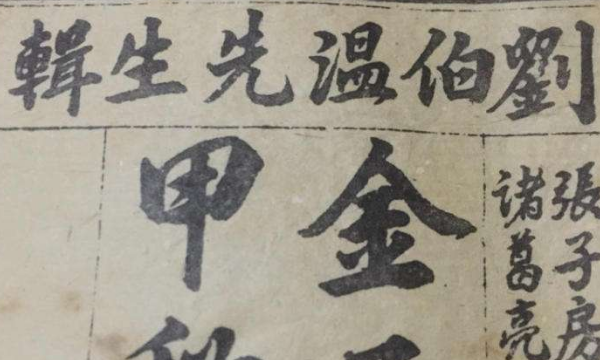 劉伯温先生輯
張子房
諸葛亮
金
甲